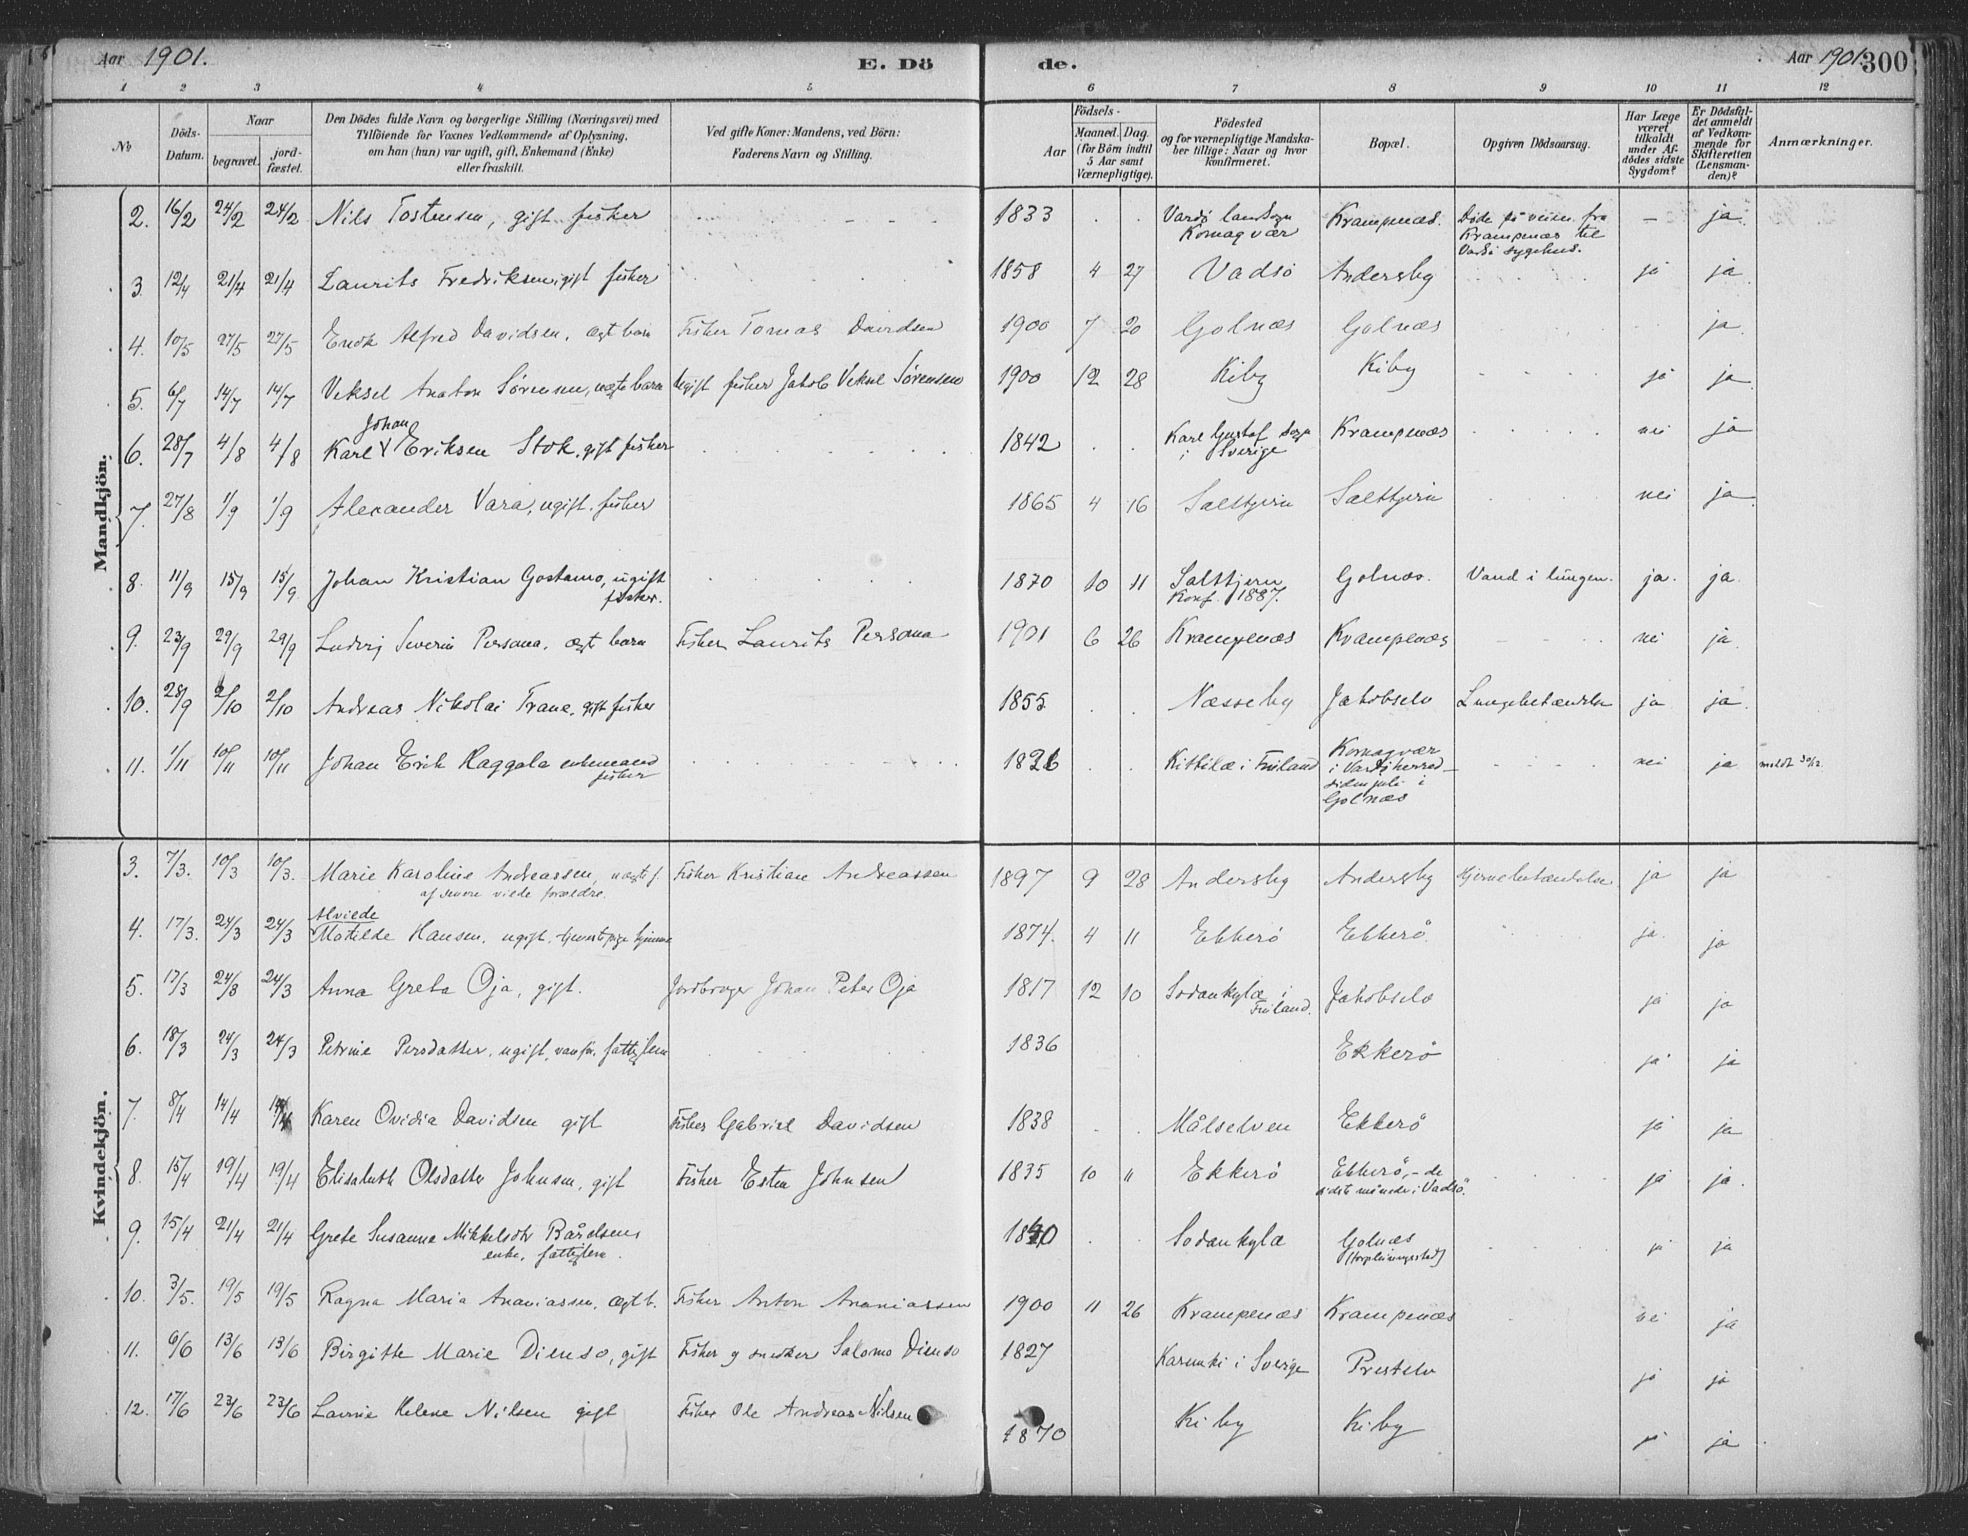 Aar 1901. E. Döde. Aar 1901. 300
1 2 3 4 5 6 7 8 9 10 11 12
No
Döds-Datum.
Naar
begravet.
jord-fæstet.
Den Dödes fulde Navn og borgerlige Stilling (Næringsvei) med
Tilföiende for Voxnes Vedkommende af Oplysning,
om han (hun) var ugift, gift, Enkemand (Enke)
eller fraskilt.
Ved gifte Koner: Mandens, ved Börn:
Faderens Navn og Stilling.
Födsels-
Aar
Maaned. Dag.
(for Börn indtil
5 Aar samt
Værnepligtige).
Födested
og for værnepligtige Mandska-
ber tillige: Naar og hvor
konfirmeret.
Bopæl.
Opgiven Dödsaarsag.
Har Læge
været
tilkaldt
under Af-
dödes sidste
Sygdom?
Er Dödsfal-
det anmeldt
af Vedkom-
mende for
Skifteretten
(Lensman-
den)?
Anmærkninger.
Mandkjön.
2. 16/2 24/2 24/2 Nils Tostensen, gift fisker 1833 Vardö landsogn Komagvær Krampenæs. Döde på veien fra Krampenæs til Vardö sygehus. — ja.
3. 12/4 21/4 21/4 Laurits Fredriksen, gift fisker 1858 4 27 Vadsö Andersby ja ja
4. 10/5 27/5 27/5 Alfred Davidsen, ægt barn Fisker Tomas Davidsen 1900 7 20 Golnæs Golnæs ja.
5. 6/7 14/7 14/7 Veksel Anaton Sörensen, uægte barn Ugift fisker Jakob Veksel Sörensen 1900 12 28 Kiby Kiby ja ja.
6. 28/7 4/8 4/8 Karl Johan Eriksen Stok, gift fisker 1842 Karl Gustaf sogn i Sverige Krampenæs nei ja
7. 27/8 1/9 1/9 Alexander Vara, ugift, fisker 1865 4 16 Saltfjern Saltfjern nei ja
8. 11/9 15/9 15/9 Johan Kristian Gostamo, ugift fisker. 1870 10 11 Saltfjern Konf. 1887. Golnæs. Vand i lungen. ja. ja.
9. 23/9 29/9 29/9 Ludvig Severin Persona, ægte barn Fisker Laurits Persona 1901 6 26 Krampenæs Krampenæs nei ja.
10. 28/9 2/10 2/10 Andreas Nikolai Trane, gift fisker 1855 Næsseby Jakobselv Lungebetændelse ja ja.
11. 1/11 10/11 10/11 Johan Erik Raggala enkemand fisker 1826 Kittilæ i Finland Komagvær i Vardö herred — siden juli i Golnæs nei ja meldt 30/12
Kvindekjön.
3. 7/3. 10/3 10/3. Marie Karoline Andreassen, uægte f. af senere viede forældre. Fisker Kristian Andreassen 1897 9 28 Andersby Andersby Hjernebetændelse ja ja
4. 17/3. 24/3 24/3 Alviede Matilde Hansen, ugift, tjenestpige hjemme 1874. 4 11 Ekkerö Ekkerö ja. ja
5. 17/3 24/3 24/3 Anna Greta Oja, gift. Jordbruger Johan Peter Oja 1817 12 10 Sodankylæ i Finland. Jakobselv ja ja
6. 18/3 24/3 24/3 Petrine Persdatter, ugift, vanfør, fattiglem 1836 Ekkerö ja ja
7. 8/4 14/4 14/4 Karen Ovidia Davidsen gift Fisker Gabriel Davidsen 1838 Målselven Ekkerö ja ja
8. 15/4 19/4 19/4 Elisabeth Olsdatter Johnsen, gift Fisker Esten Johnsen 1835 10 11 Ekkerö Ekkerö, – de sidste måneder i Vadsö. ja ja.
9. 15/4 21/4 21/4 Grete Susanna Mikkelsdtr Bårdsens enke, fattiglem. 1840 Sodankylä Golnæs (forpleiningssted) ja ja
10. 3/5. 19/5 19/5 Ragna Maria Ananiassen, ægt b. Fisker Anton Ananiassen 1900 11 26 Krampenæs Krampenæs nei ja
11. 6/6 13/6 13/6 Birgitte Marie Dienso, gift Fisker og snedker Salomo Dienso 1827 Karunki i Sverige Prestelv ja ja
12. 17/6 23/6 23/6 Lavrie Helene Nilsen gift Fisker Ole Andreas Nilsen 1870 Kiby Kiby ja ja